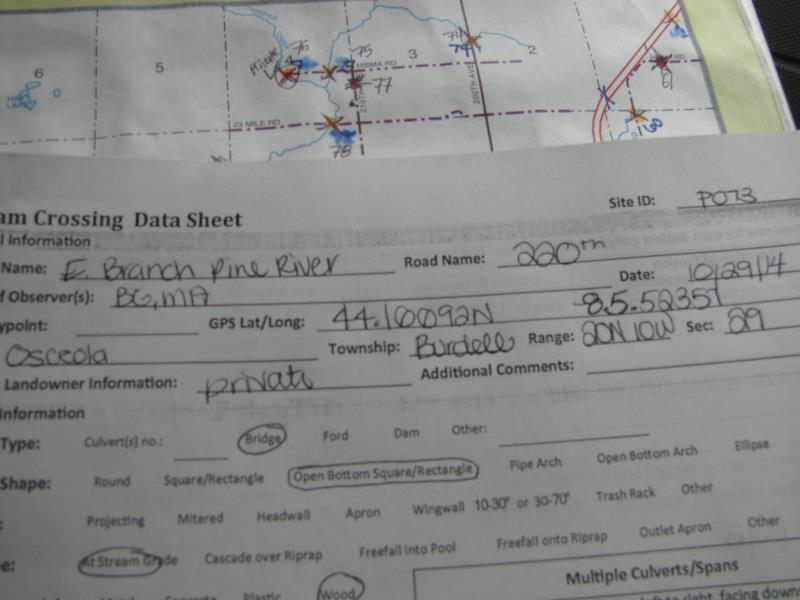 76 75 74
Private 3 2
6 5 4 HIBMA RD
77 61
210TH 200TH AVE
23 MILE RD 160
78
Site ID: P073
am Crossing Data Sheet
l Information
Name: E. Branch Pine River Road Name: 220th
f Observer(s): BG, MA Date: 10/29/14
ypoint: GPS Lat/Long: 44.10092N -85.52351
Osceola Township: Burdell Range: 20N 10W Sec: 29
Landowner Information: private Additional Comments:
Information
Type: Culvert(s) no.: Bridge Ford Dam Other:
Shape: Round Square/Rectangle Open Bottom Square/Rectangle Pipe Arch Open Bottom Arch Ellipse
: Projecting Mitered Headwall Apron Wingwall 10-30° or 30-70° Trash Rack Other
e: At Stream Grade Cascade over Riprap Freefall Into Pool Freefall onto Riprap Outlet Apron Other
Concrete Plastic Wood
Multiple Culverts/Spans
left to right, facing down